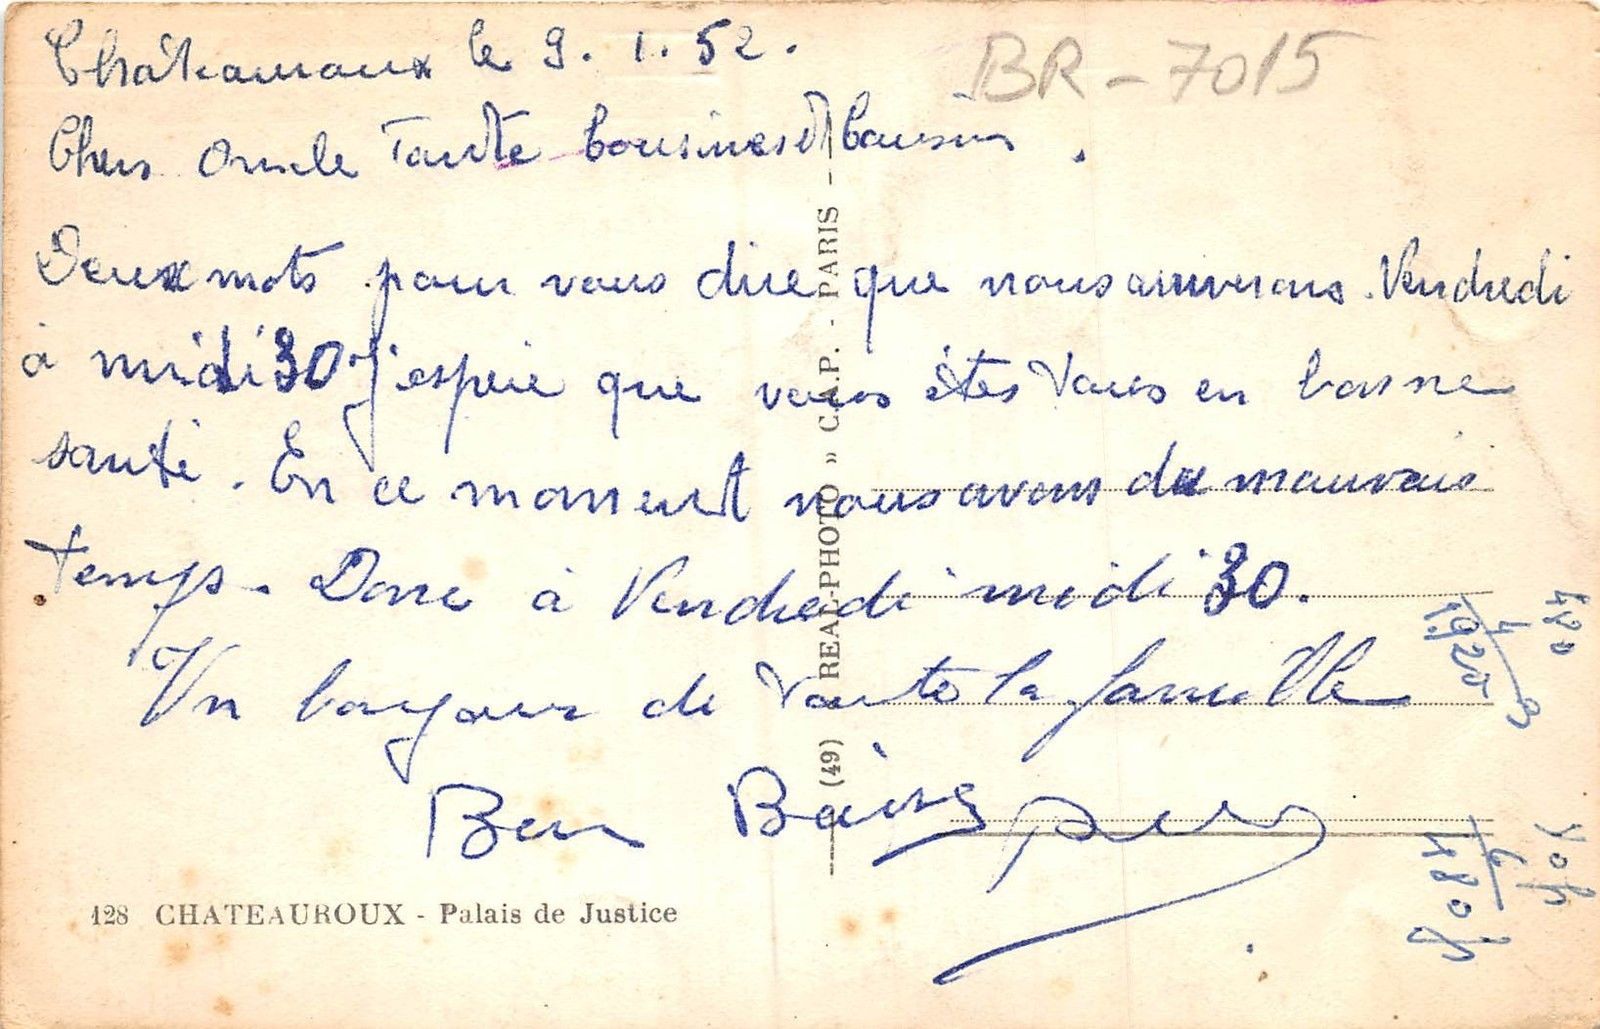 Châteauroux le 9.1.52.
BR-7015
Chers Oncle Tante Cousines et Cousin.
Deux mots pour vous dire que nous arriverons Vendredi
à midi 30. J'espère que vous êtes tous en bonne
santé. En ce moment nous avons du mauvais
temps. Donc à Vendredi midi 30.
Un bonjour de toute la famille
Bon Baiser
128 CHATEAUROUX - Palais de Justice
(49) REAL-PHOTO » C.A.P. - PARIS
480
4
1.920